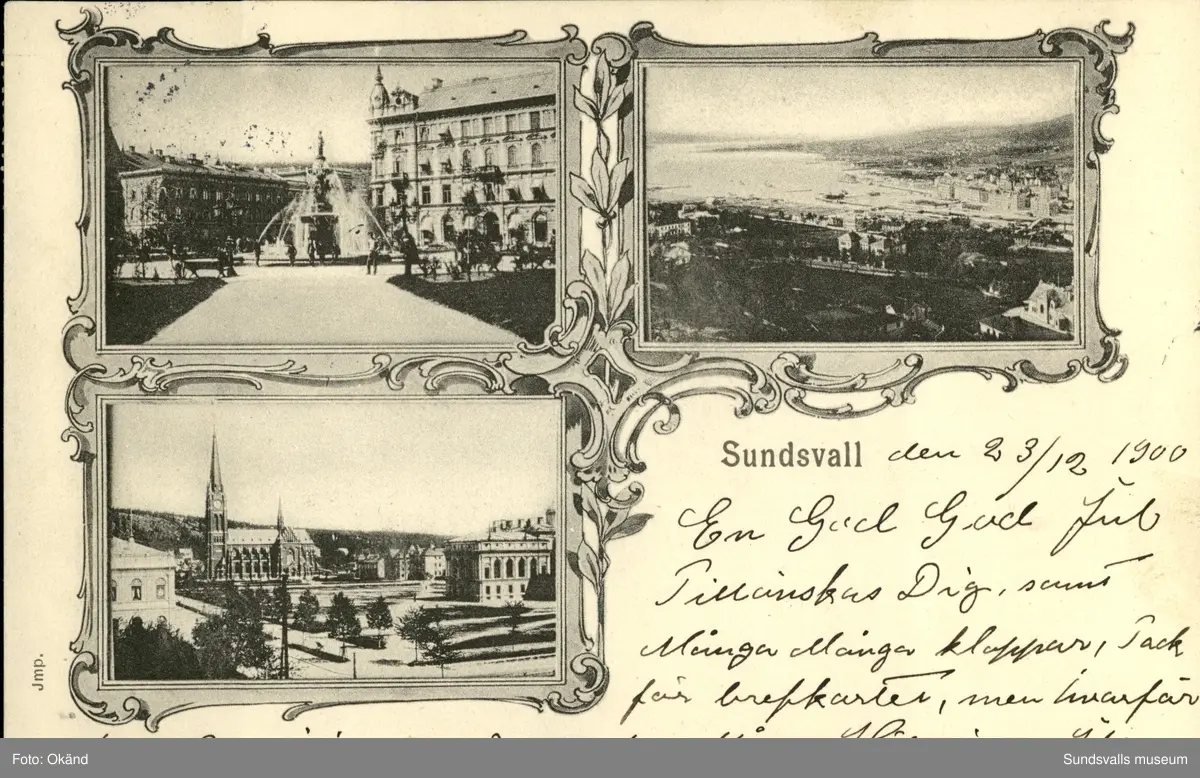 Sundsvall den 23/12 1900
En God God Jul
Tillönskas Dig, samt
Många Många klappar, Tack
för brefkortet, men hvarför
Jmp.
Foto: Okänd
Sundsvalls museum